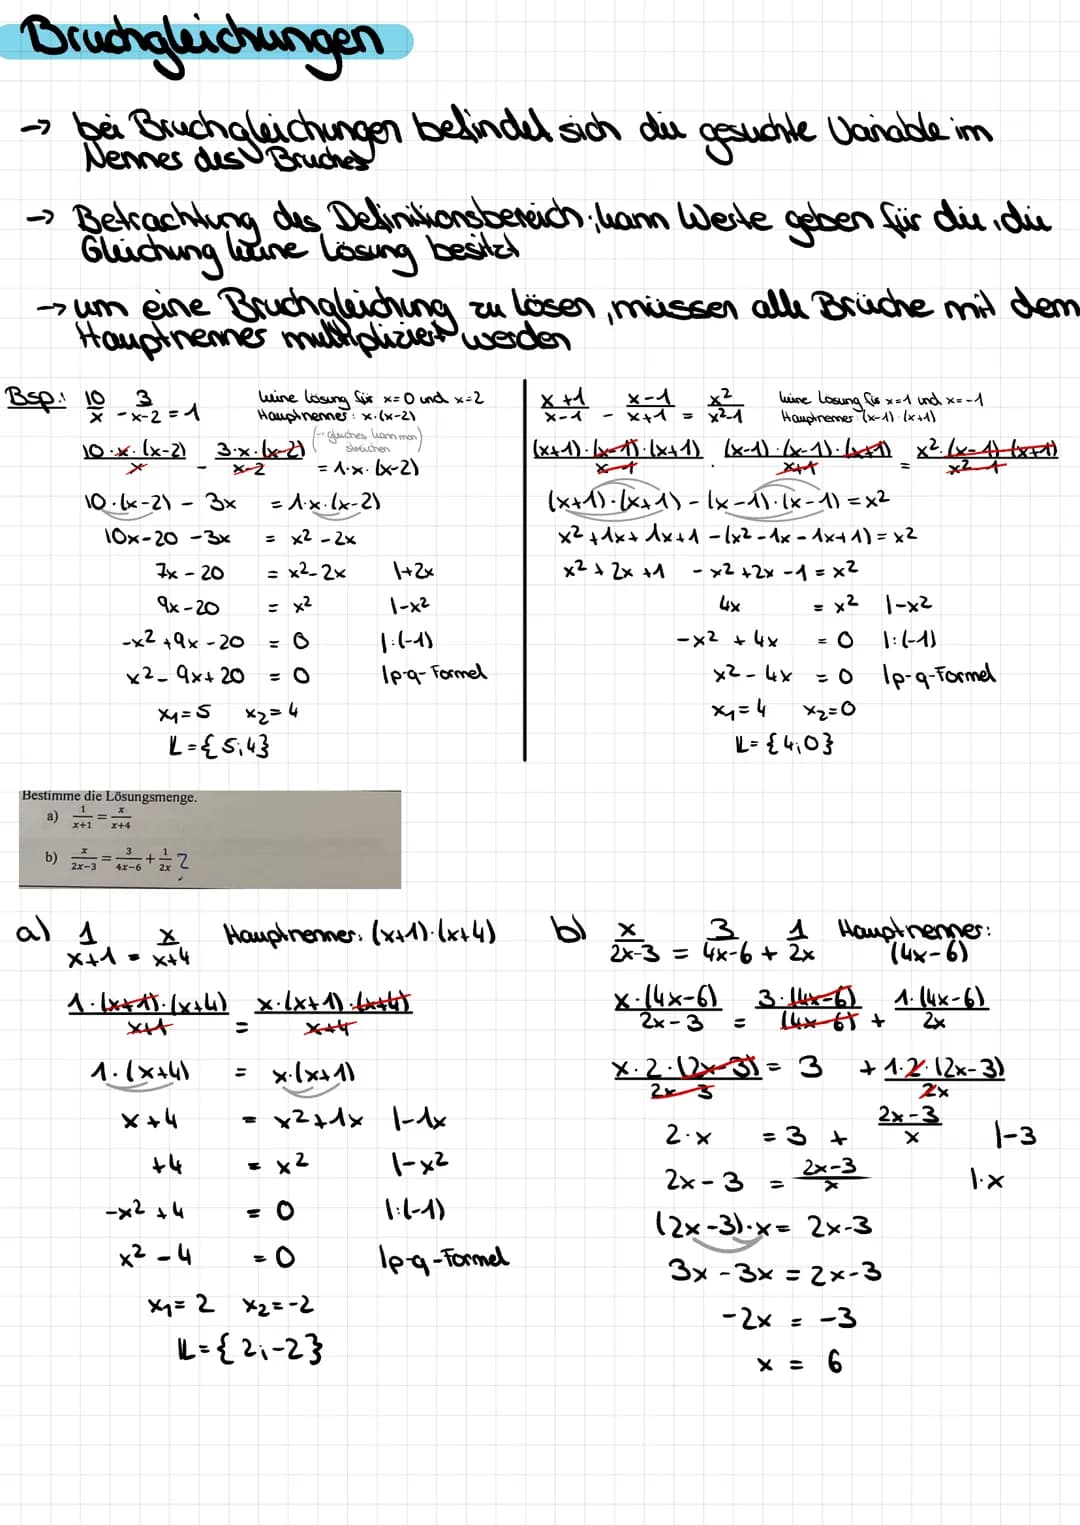 Bruchgleichungen
→ bei Bruchgleichungen befindet sich die gesuchte Variable im
Nenner des Bruches
→ Betrachtung des Definitionsbereich; kann Werte geben für die, die
Gleichung keine Lösung besitzt
→ um eine Bruchgleichung zu lösen, müssen alle Brüche mit dem
Hauptnenner multipliziert werden
Bsp.: 10/x - 3/x-2 = 1
keine Lösung für x=0 und x=2
Hauptnenner: x·(x-2)
(→ gleiches kann man streichen)
10·x·(x-2)/x - 3·x·(x-2)/x-2 = 1·x·(x-2)
10·(x-2) - 3x = 1·x·(x-2)
10x-20 -3x = x² -2x
7x - 20 = x²-2x |+2x
9x-20 = x² |-x²
-x² +9x -20 = 0 |:(-1)
x² - 9x+20 = 0 |p-q-Formel
x₁=5 x₂=4
𝕃={5;4}
x+1/x-1 - x-1/x+1 = x²/x²-1
keine Lösung für x=1 und x=-1
Hauptnenner: (x-1)·(x+1)
(x+1)·(x-1)·(x+1)/x-1 · (x-1)·(x-1)·(x+1)/x+1 = x²·(x-1)·(x+1)/x²-1
(x+1)·(x+1) - (x-1)·(x-1) = x²
x²+1x+1x+1 -(x²-1x-1x+1) = x²
x² + 2x +1 - x² +2x -1 = x²
4x = x² |-x²
-x² + 4x = 0 |:(-1)
x² - 4x = 0 |p-q-Formel
x₁=4 x₂=0
𝕃={4;0}
Bestimme die Lösungsmenge.
a) 1/x+1 = x/x+4
b) x/2x-3 = 3/4x-6 + 1/2x 2
a) 1/x+1 = x/x+4 Hauptnenner: (x+1)·(x+4)
1·(x+1)·(x+4)/x+1 = x·(x+1)·(x+4)/x+4
1·(x+4) = x·(x+1)
x+4 = x²+1x |-1x
+4 = x² |-x²
-x² +4 = 0 |:(-1)
x² - 4 = 0 |p-q-Formel
x₁= 2 x₂=-2
𝕃={2;-2}
b) x/2x-3 = 3/4x-6 + 1/2x Hauptnenner:
(4x-6)
x·(4x-6)/2x-3 = 3·(4x-6)/(4x-6) + 1·(4x-6)/2x
x·2·(2x-3)/2x-3 = 3 + 1·2·(2x-3)/2x
2·x = 3 + 2x-3/x |-3
2x-3 = 2x-3/x |·x
(2x-3)·x = 2x-3
3x -3x = 2x-3
-2x = -3
x = 6